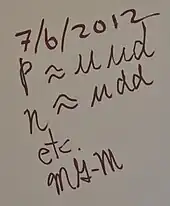 7/6/2012
p ≈ u u d
n ≈ u d d
etc.
MG-M